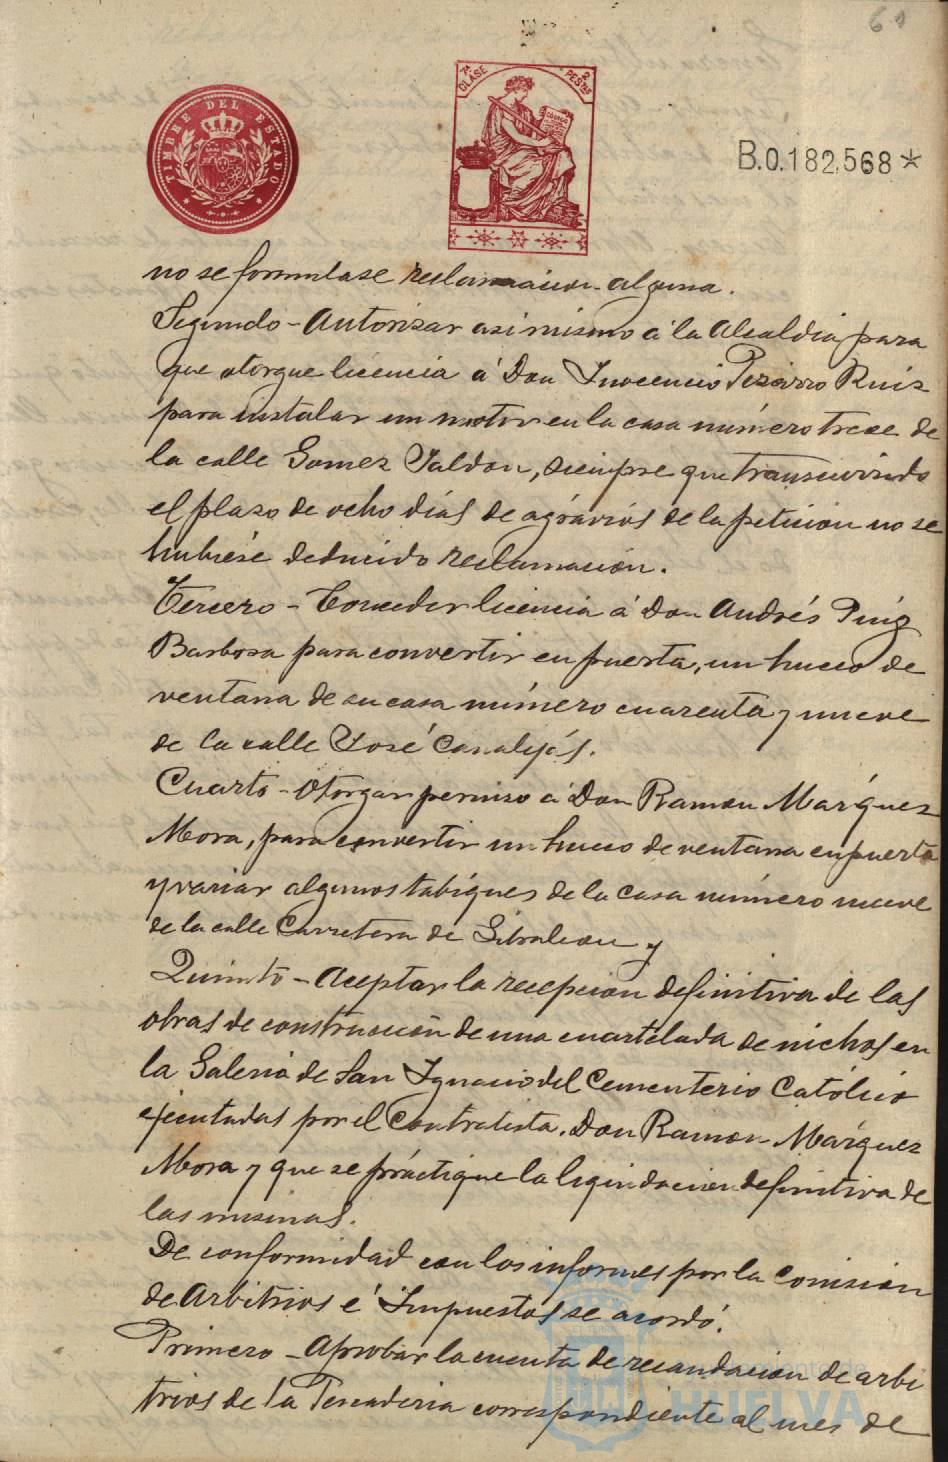 61
TIMBRE DEL ESTADO
7ª CLASE
2 PESTAS
B.0.182,568*
no se formulase reclamacion alguna.
Segundo - Autorizar asi mismo á la Alcaldia para
que otorgue licencia á Don Inocencio Pizarro Ruiz
para instalar un motor en la casa número trece de
la calle Gomez Jaldon, siempre que transcurrido
el plazo de ocho días de agravios de la petición no se
hubiese deducido reclamación.
Tercero - Conceder licencia á Don Andrés Puig
Barbosa para convertir en puerta, un hueco de
ventana de su casa número cuarenta y nueve
de la calle José Canalejas.
Cuarto - Otorgar permiso á Don Ramon Márquez
Mora, para convertir un hueco de ventana en puerta
y variar algunos tabiques de la casa número nueve
de la calle Carretera de Gibraleon y
Quinto - Aceptar la recepcion definitiva de las
obras de construcción de una cuartelada de nichos en
la Galeria de San Ignacio del Cementerio Católico
ejecutadas por el Contratista, Don Ramon Márquez
Mora y que se práctique la liquidacion definitiva de
las mismas.
De conformidad con los informes por la Comision
de Arbitrios é Impuestos se acordó.
Primero - Aprobar la cuenta de recaudacion de arbi
trios de la Pescaderia correspondiente al mes de
Ayuntamiento de
HUELVA